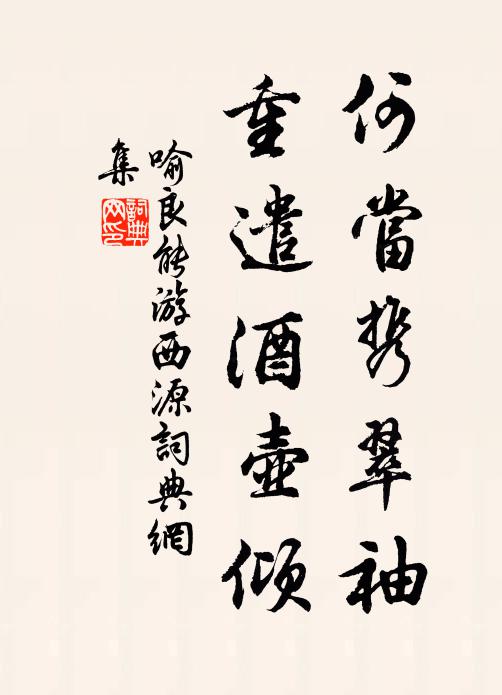 何當携翠袖
重遣酒壺傾
喻良能游西源詞典網
集
詞典網印